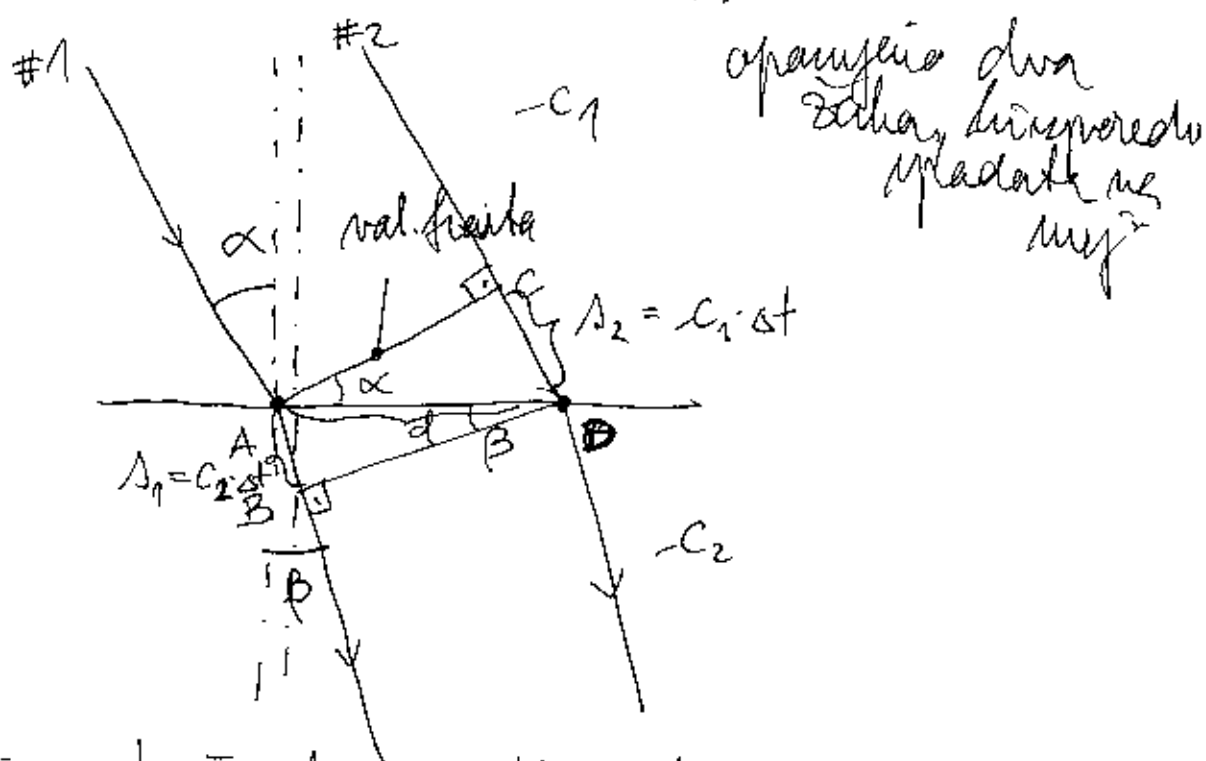 #1
#2
-C₁
opazujemo dva
žarka, vzporedno
vpadata na
mejo
α
val. fronta
C
s₂ = C₁·Δt
α
d
β
A
D
s₁ = C₂·Δt
B
-C₂
β